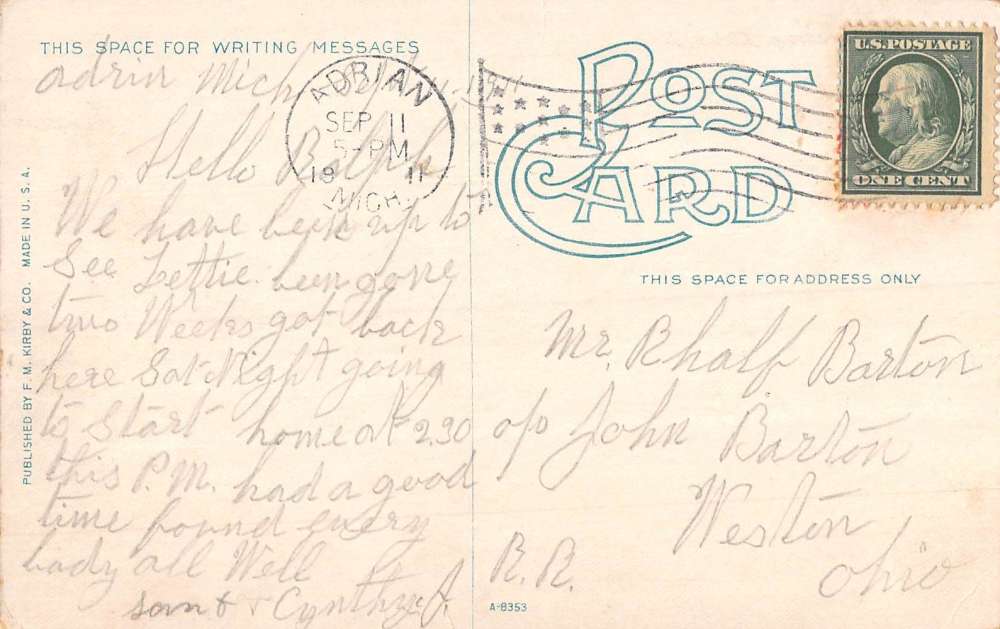 THIS SPACE FOR WRITING MESSAGES
adrin Mich
Hello Ralph
We have been up to
See Lettie been gone
two Weeks got back
here Sat Night going
to Start home at 2.30
this P.M. had a good
time found every
body all Well
& Cynthye J.
ADRIAN
SEP 11
5-PM
19 11
MICH.
POST
CARD
U.S. POSTAGE
ONE CENT
THIS SPACE FOR ADDRESS ONLY
Mr. Rhalf Barton
c/o John Barton
Weston,
R.R. Ohio
A-8353
PUBLISHED BY F. M. KIRBY & CO. MADE IN U. S. A.